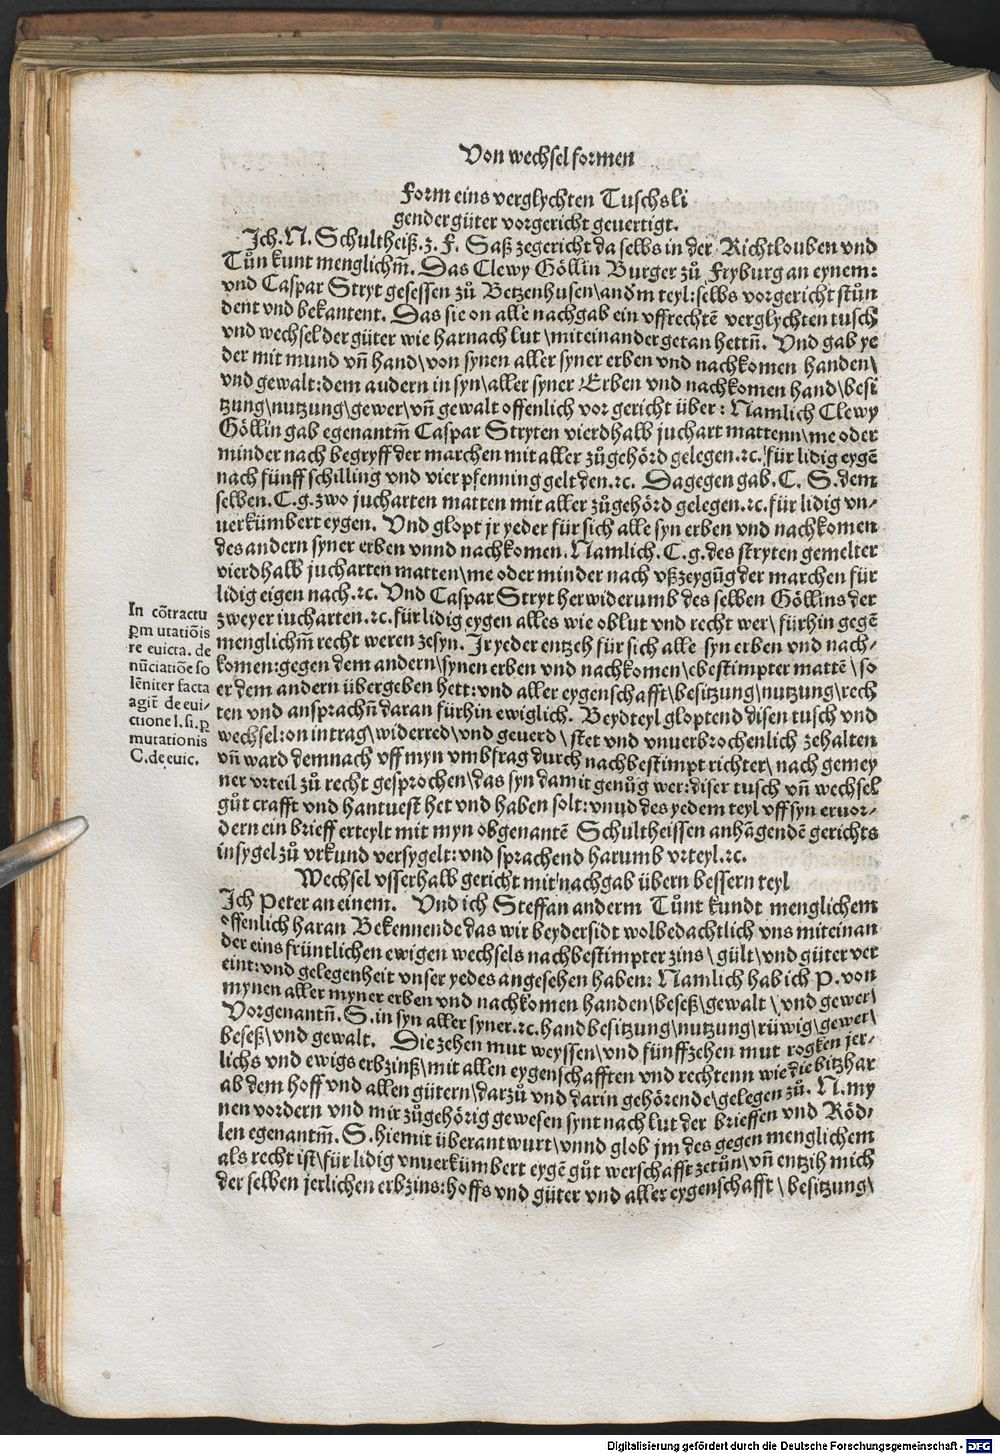 Von wechsel formen
Form eins verglychten Tuschs li
gender güter vor gericht geuertigt.
Ich. N. Schultheiß. z. F. Saß ze gericht da selbs in der Richtlouben vnd
Tůn kunt menglichm̄. Das Clewy Göllin Burger zů Fryburg an eynem:
vnd Caspar Stryt gesessen zů Betzenhusen\ andm̄ teyl: selbs vor gericht stůn
dent vnd bekantent. Das sie on alle nachgab ein vffrechtē verglychten tusch
vnd wechsel der güter wie harnach lut \ miteinander getan hettn̄. Vnd gab ye
der mit mund vn̄ hand\ von synen aller syner erben vnd nachkomen handen\
vnd gewalt: dem audern in syn\ aller syner Erben vnd nachkomen hand\ besi
tzung\ nutzung\ gewer\ vn̄ gewalt offenlich vor gericht über: Namlich Clewy
Göllin gab egenantm̄ Caspar Stryten vierdhalb juchart mattenn\ me oder
minder nach begryff der marchen mit aller zůgehörd gelegen. ꝛc. für lidig eygē
nach fünff schilling vnd vier pfenning gelt den. ꝛc. Dagegen gab. C. S. dem
selben. C. g. zwo jucharten matten mit aller zůgehörd gelegen. ꝛc. für lidig vn-
uerkümbert eygen. Vnd glopt jr yeder für sich alle syn erben vnd nachkomen
des andern syner erben vnnd nachkomen. Namlich. C. g. des stryten gemelter
vierdhalb jucharten matten\ me oder minder nach vßzeygūg der marchen für
lidig eigen nach. ꝛc. Vnd Caspar Stryt herwiderumb des selben Göllins der
zweyer iucharten. ꝛc. für lidig eygen alles wie oblut vnd recht wer\ fürhin gegē
menglichm̄ recht weren ze syn. Jr yeder entzeh für sich alle syn erben vnd nach-
komen: gegen dem andern\ synen erben vnd nachkomen\ ebestimpter mattē \ so
er dem andern übergeben hett: vnd aller eygenschafft\ besitzung\ nutzung\ rech
ten vnd ansprachn̄ daran fürhin ewiglich. Beydteyl gloptend disen tusch vnd
wechsel: on intrag\ widerred\ vnd geuerd \ stet vnd vnuerbrochenlich zehalten
vn̄ ward demnach vff myn vmbfrag durch nachbestimpt richter\ nach gemey
ner vrteil zů recht gesprochen\ das syn damit genůg wer: diser tusch vn̄ wechsel
gůt crafft vnd hantuest het vnd haben solt: vnud des yedem teyl vff syn eruor-
dern ein brieff erteylt mit myn obgenantē Schultheissen anhāgendē gerichts
insygel zů vrkund versygelt: vnd sprachend harumb vrteyl. ꝛc.
In cōtractu
ꝑmutatiōis
re euicta. de
nūciatiōe so
lēniter facta
agit̄ de eui-
ctione l. si. ꝑ
mutationis
C. de euic.
Wechsel vsserhalb gericht mit nachgab übern bessern teyl
Ich Peter an einem. Vnd ich Steffan anderm Tůnt kundt menglichem
offenlich haran Bekennende das wir beydersidt wolbedachtlich vns miteinan
der eins früntlichen ewigen wechsels nachbestimpter zins\ gült\ vnd güter ver
eint: vnd gelegenheit vnser yedes angesehen haben: Namlich hab ich P. von
mynen aller myner erben vnd nachkomen handen\ beseß\ gewalt \ vnd gewer\
Vorgenantn̄. S. in syn aller syner. ꝛc. hand besitzung\ nutzung\ rüwig\ gewer\
beseß\ vnd gewalt. Die zehen mut weyssen\ vnd fünffzehen mut rogken jer-
lichs vnd ewigs erbzinß\ mit allen eygenschafften vnd rechtenn wie die bitzhar
ab dem hoff vnd allen gütern\ darzů vnd darin gehörende\ gelegen zů. N. my
nen vordern vnd mir zůgehörig gewesen synt nach lut der brieffen vnd Röd-
len egenantm̄. S. hiemit überantwurt\ vnnd glob jm des gegen menglichem
als recht ist\ für lidig vnuerkümbert eygē gůt werschafft zetůn\ vn̄ entzih mich
der selben jerlichen erbzins: hoffs vnd güter vnd aller eygenschafft \ besitzung\
Digitalisierung gefördert durch die Deutsche Forschungsgemeinschaft - DFG